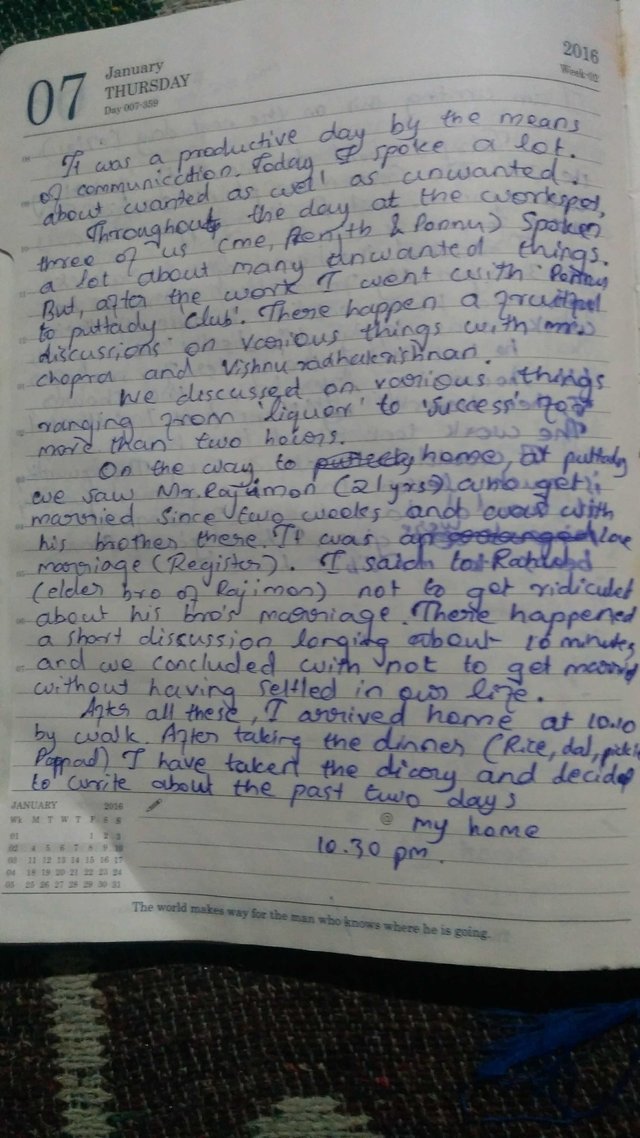 07
January
THURSDAY
Day 007-359
2016
Week-02
It was a productive day by the means
of communication. Today I spoke a lot.
about wanted as well as unwanted.
Throughout the day at the workspot,
three of us (me, Renjith & Ponnu) Spoken
a lot about many unwanted things.
But, after the work I went with Ponnu
to puttady 'Club'. There happen a fruitful
discussions on various things with mr.
chopra and Vishnu radhakrishnan.
We discussed on various things
ranging from 'liquor' to 'success' for
more than two hours.
On the way to home, at puttady
we saw Mr. Rajimon (21yrs) who get
married since two weeks and was with
his brother there. It was love
marriage (Register). I said to
(elder bro of Rajimon) not to get ridiculed
about his bro's marriage. There happened
a short discussion longing about 10 minutes
and we concluded with not to get married
without having settled in our life.
After all these, I arrived home at 10.10
by walk. After taking the dinner (Rice, dal, pickle
Pappad) I have taken the diary and decided
to write about the past two days
@ my home
10.30 pm.
JANUARY 2016
Wk M T W T F S S
01 1 2 3
02 4 5 6 7 8 9 10
03 11 12 13 14 15 16 17
04 18 19 20 21 22 23 24
05 25 26 27 28 29 30 31
The world makes way for the man who knows where he is going.